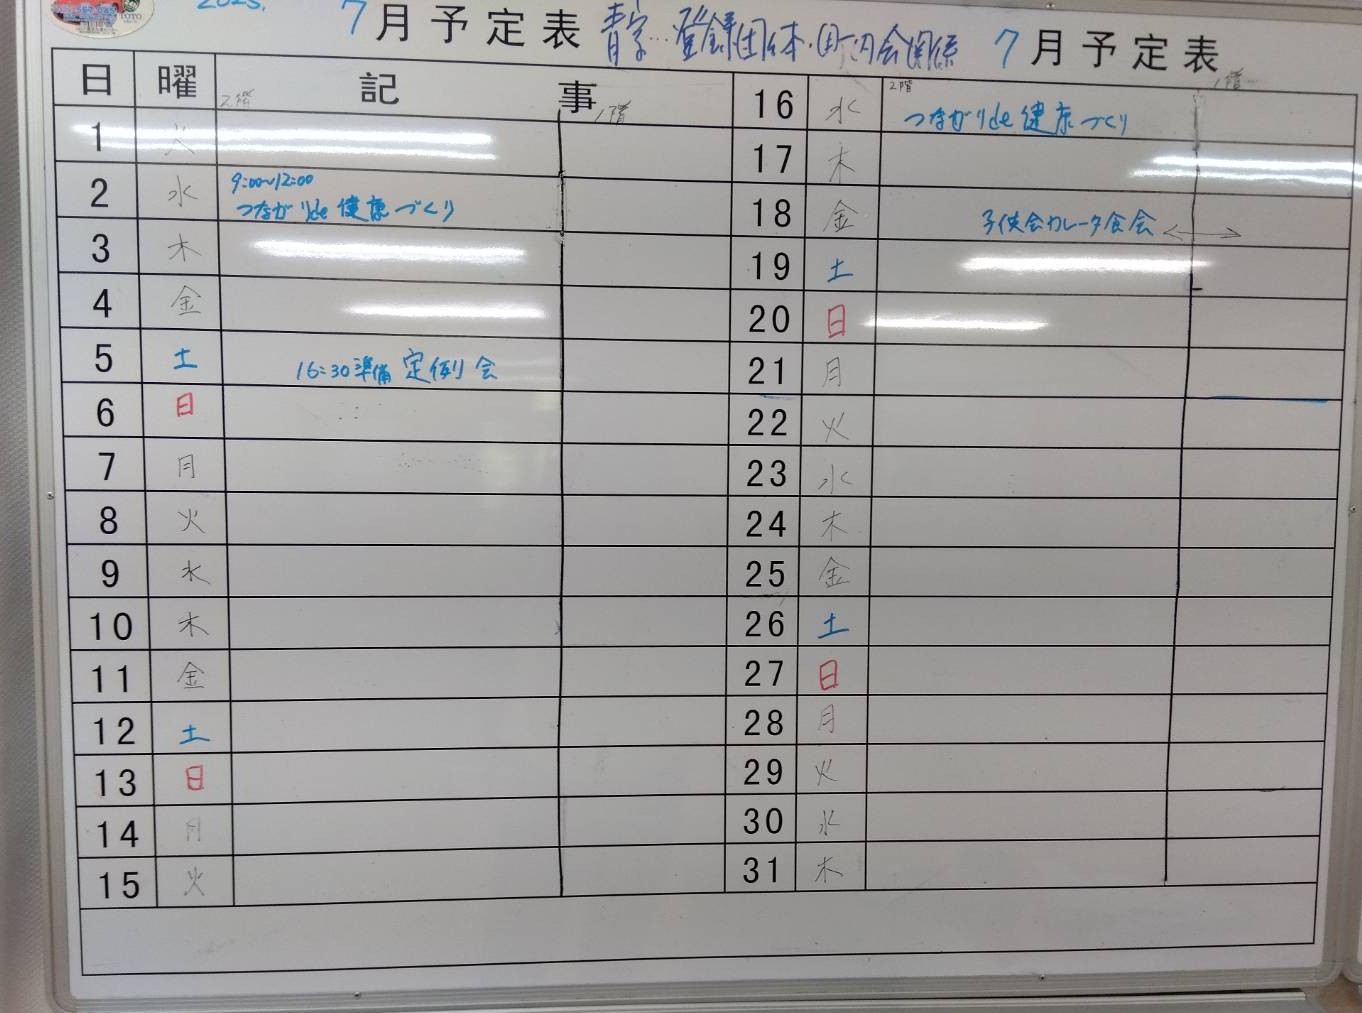 2025.
TOTO
7月予定表 青字…登録団体・町内会関係 7月予定表
日 曜 記事
2階 1階
1 火
2 水 9:00~12:00
つながりde健康づくり
3 木
4 金
5 土 16:30準備 定例会
6 日
7 月
8 火
9 水
10 木
11 金
12 土
13 日
14 月
15 火
2階 1階
16 水 つながりde健康づくり
17 木
18 金 子供会カレー夕食会
19 土
20 日
21 月
22 火
23 水
24 木
25 金
26 土
27 日
28 月
29 火
30 水
31 木